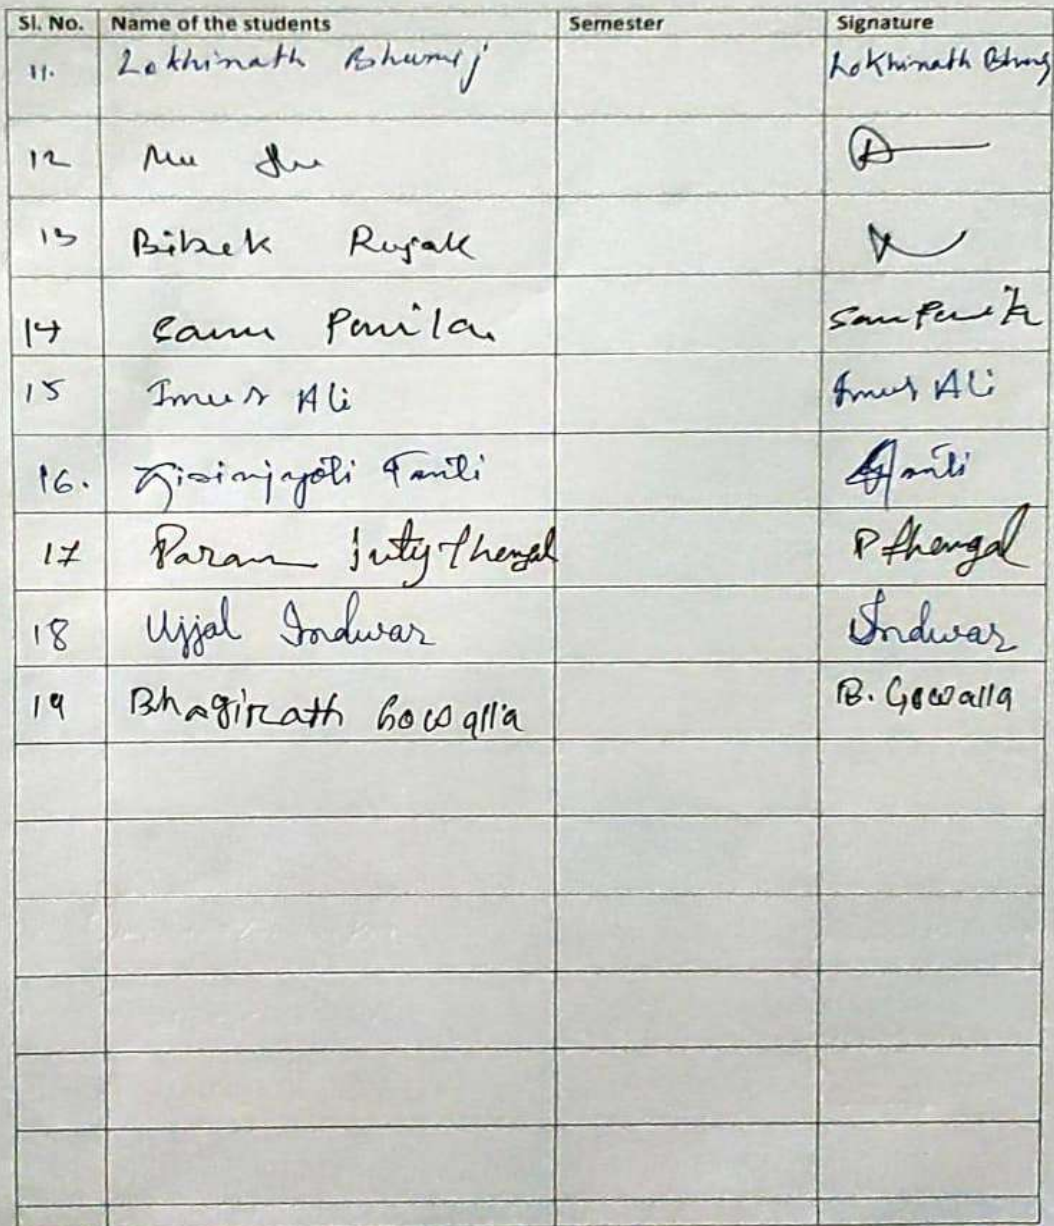 Sl. No. Name of the students Semester Signature
11. Lokhinath Bhumij Lokhinath Bhumj
12
13 Bibek Rujak
14 Sam
15 Imus Ali Imus Ali
16. Tanti Tanti
17 Param Juty Thengal P Thengal
18 Ujjal Indwar Indwar
19 Bhagirath Gowalla B. Gowalla